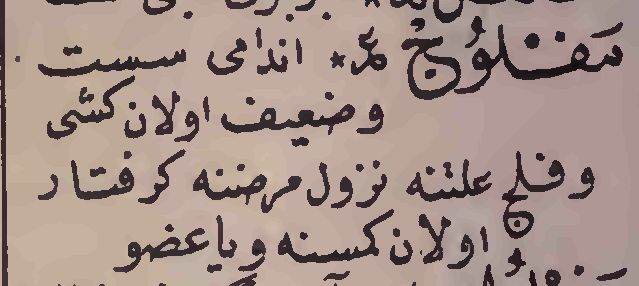 مفلوج عر* اندامی سست
وضعیف اولان کشی
وفلج علتنه نزول مرضنه کرفتار
اولان کمسنه ویا عضو